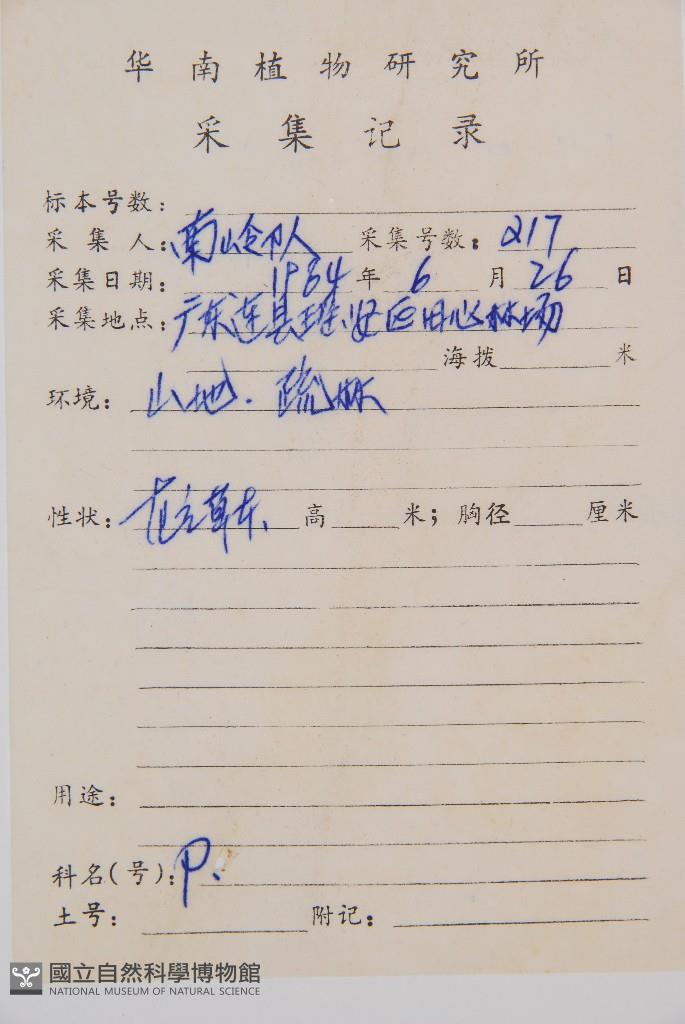 华南植物研究所
采集记录
标本号数:
采集人: 南岭队 采集号数: 217
采集日期: 1984年6月26日
采集地点: 广东连县 田心林场
海拨 米
环境: 山地. 疏林
性状: 直立草本 高 米; 胸径 厘米
用途:
科名(号): P.
土号: 附记:
國立自然科學博物館
NATIONAL MUSEUM OF NATURAL SCIENCE